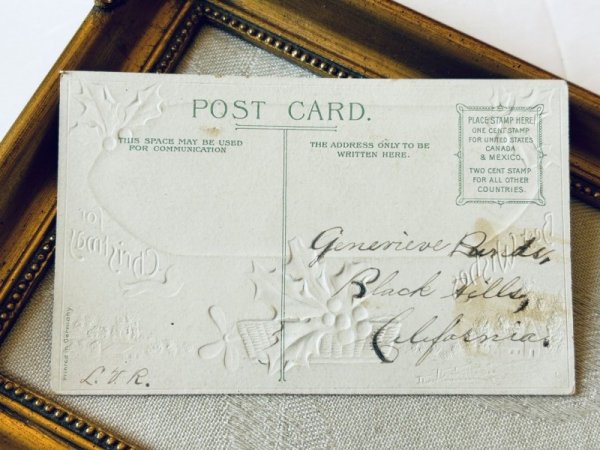 POST CARD.
THIS SPACE MAY BE USED
FOR COMMUNICATION
THE ADDRESS ONLY TO BE
WRITTEN HERE.
PLACE STAMP HERE
ONE CENT STAMP
FOR UNITED STATES
CANADA
& MEXICO.
TWO CENT STAMP
FOR ALL OTHER
COUNTRIES.
for
Christmas
Best
Wishes
Genevieve
Black Hills,
California.
Printed in Germany
L. V. R.